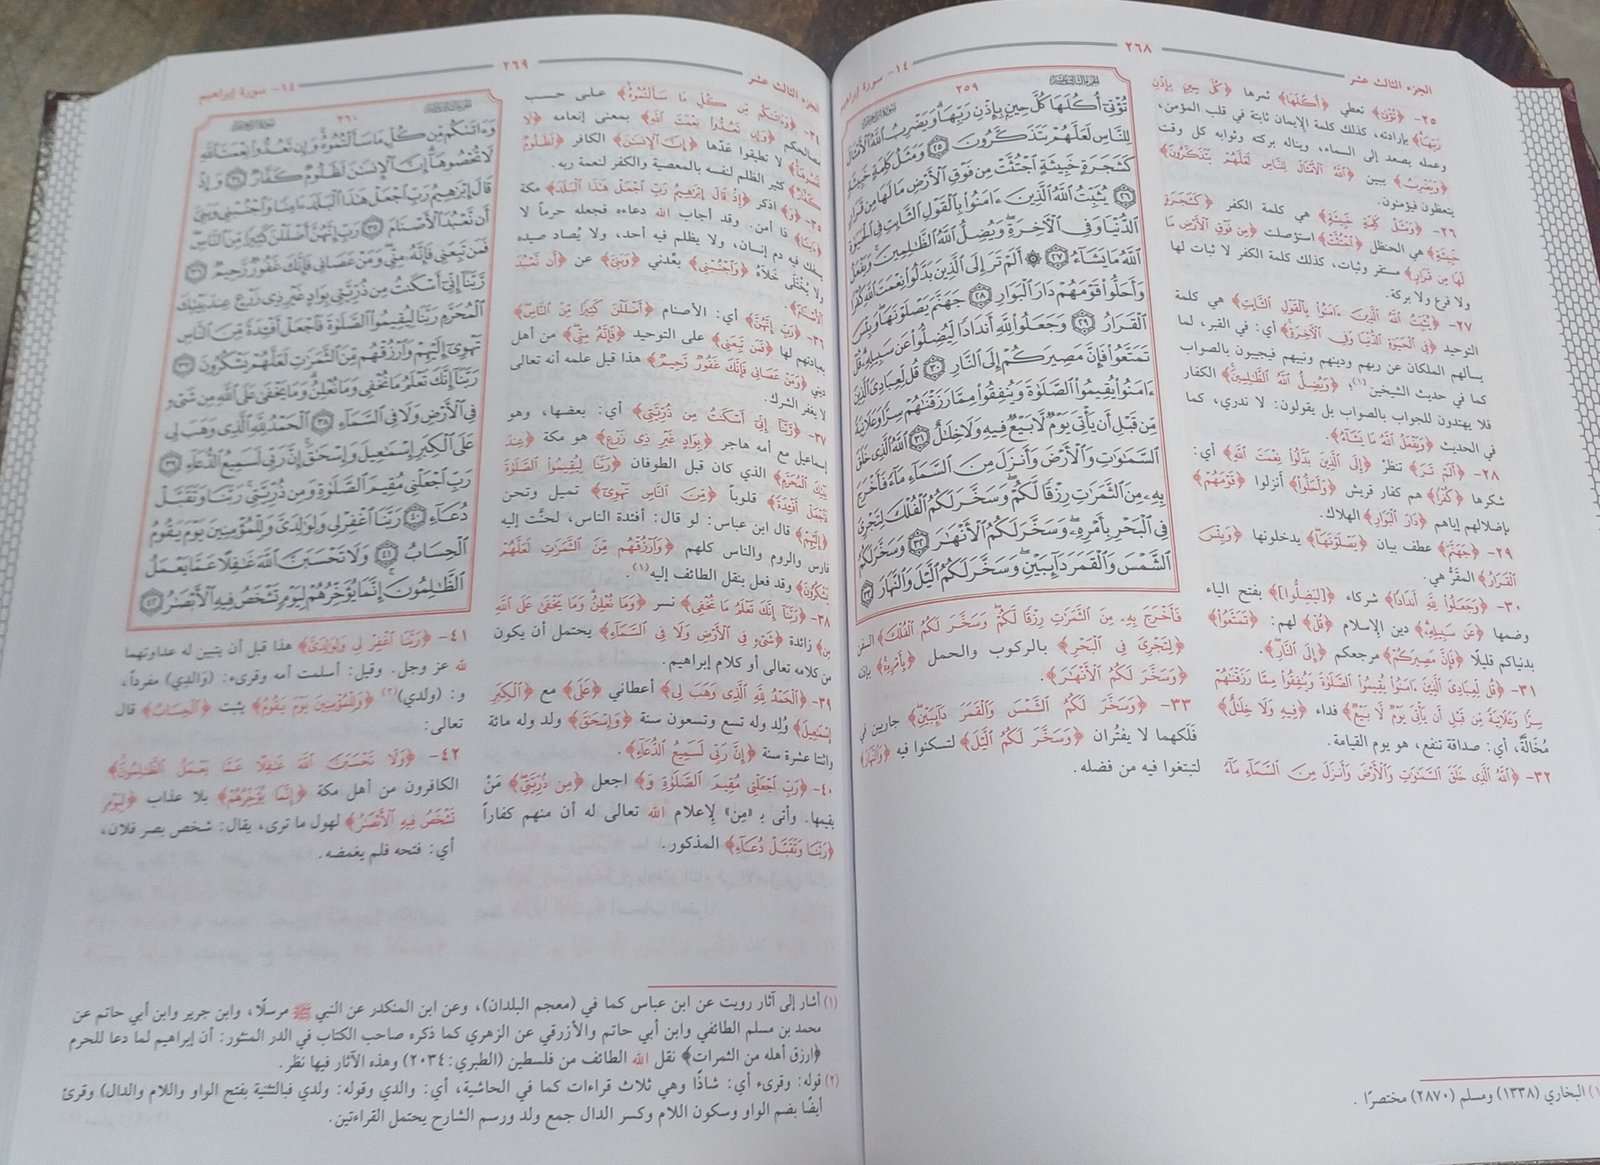 الجزء الثالث عشر
٢٦٨
١٤- سورة إبراهيم
٢٥- ﴿تُؤْتِي﴾ تعطي ﴿أُكُلَهَا﴾ ثمرها ﴿كُلَّ حِينٍ بِإِذْنِ
رَبِّهَا﴾ بإرادته، كذلك كلمة الإيمان ثابتة في قلب المؤمن،
وعمله يصعد إلى السماء، ويناله بركته وثوابه كل وقت
﴿وَيَضْرِبُ﴾ يبين ﴿اللَّهُ الْأَمْثَالَ لِلنَّاسِ لَعَلَّهُمْ يَتَذَكَّرُونَ﴾
يتعظون فيؤمنون.
٢٦- ﴿وَمَثَلُ كَلِمَةٍ خَبِيثَةٍ﴾ هي كلمة الكفر ﴿كَشَجَرَةٍ
خَبِيثَةٍ﴾ هي الحنظل ﴿اجْتُثَّتْ﴾ استؤصلت ﴿مِن فَوْقِ الْأَرْضِ مَا
لَهَا مِن قَرَارٍ﴾ مستقر وثبات، كذلك كلمة الكفر لا ثبات لها
ولا فرع ولا بركة.
٢٧- ﴿يُثَبِّتُ اللَّهُ الَّذِينَ ءَامَنُوا بِالْقَوْلِ الثَّابِتِ﴾ هي كلمة
التوحيد ﴿فِي الْحَيَوٰةِ الدُّنْيَا وَفِي الْآخِرَةِ﴾ أي: في القبر، لما
يسألهم الملكان عن ربهم ودينهم ونبيهم فيجيبون بالصواب
كما في حديث الشيخين(١)، ﴿وَيُضِلُّ اللَّهُ الظَّالِمِينَ﴾ الكفار
فلا يهتدون للجواب بالصواب بل يقولون: لا ندري، كما
في الحديث ﴿وَيَفْعَلُ اللَّهُ مَا يَشَاءُ﴾.
٢٨- ﴿أَلَمْ تَرَ﴾ تنظرْ ﴿إِلَى الَّذِينَ بَدَّلُوا نِعْمَتَ اللَّهِ﴾ أي:
شكرها ﴿كُفْرًا﴾ هم كفار قريش ﴿وَأَحَلُّوا﴾ أنزلوا ﴿قَوْمَهُمْ﴾
بإضلالهم إياهم ﴿دَارَ الْبَوَارِ﴾ الهلاك.
٢٩- ﴿جَهَنَّمَ﴾ عطف بيان ﴿يَصْلَوْنَهَا﴾ يدخلونها ﴿وَبِئْسَ
الْقَرَارُ﴾ المقَرُّ هي.
٣٠- ﴿وَجَعَلُوا لِلَّهِ أَندَادًا﴾ شركاء ﴿[لِيُضِلُّوا]﴾ بفتح الياء
وضمها ﴿عَن سَبِيلِهِ﴾ دين الإسلام ﴿قُلْ﴾ لهم: ﴿تَمَتَّعُوا﴾
بدنياكم قليلًا ﴿فَإِنَّ مَصِيرَكُمْ﴾ مرجعكم ﴿إِلَى النَّارِ﴾.
٣١- ﴿قُل لِّعِبَادِيَ الَّذِينَ ءَامَنُوا يُقِيمُوا الصَّلَوٰةَ وَيُنفِقُوا مِمَّا رَزَقْنَاهُمْ
سِرًّا وَعَلَانِيَةً مِّن قَبْلِ أَن يَأْتِيَ يَوْمٌ لَّا بَيْعٌ﴾ فداء ﴿فِيهِ وَلَا خِلَالٌ﴾
مُخَالَّةٌ، أي: صداقة تنفع، هو يوم القيامة.
٣٢- ﴿اللَّهُ الَّذِي خَلَقَ السَّمَاوَاتِ وَالْأَرْضَ وَأَنزَلَ مِنَ السَّمَاءِ مَاءً
٢٥٩
تُؤْتِي أُكُلَهَا كُلَّ حِينٍ بِإِذْنِ رَبِّهَا وَيَضْرِبُ اللَّهُ الْأَمْثَالَ
لِلنَّاسِ لَعَلَّهُمْ يَتَذَكَّرُونَ ٢٥ وَمَثَلُ كَلِمَةٍ خَبِيثَةٍ
كَشَجَرَةٍ خَبِيثَةٍ اجْتُثَّتْ مِن فَوْقِ الْأَرْضِ مَا لَهَا مِن قَرَارٍ
٢٦ يُثَبِّتُ اللَّهُ الَّذِينَ ءَامَنُوا بِالْقَوْلِ الثَّابِتِ فِي الْحَيَوٰةِ
الدُّنْيَا وَفِي الْآخِرَةِ وَيُضِلُّ اللَّهُ الظَّالِمِينَ وَيَفْعَلُ
اللَّهُ مَا يَشَاءُ ٢٧ ۞ أَلَمْ تَرَ إِلَى الَّذِينَ بَدَّلُوا نِعْمَتَ اللَّهِ كُفْرًا
وَأَحَلُّوا قَوْمَهُمْ دَارَ الْبَوَارِ ٢٨ جَهَنَّمَ يَصْلَوْنَهَا وَبِئْسَ
الْقَرَارُ ٢٩ وَجَعَلُوا لِلَّهِ أَندَادًا لِّيُضِلُّوا عَن سَبِيلِهِ قُلْ
تَمَتَّعُوا فَإِنَّ مَصِيرَكُمْ إِلَى النَّارِ ٣٠ قُل لِّعِبَادِيَ الَّذِينَ
ءَامَنُوا يُقِيمُوا الصَّلَوٰةَ وَيُنفِقُوا مِمَّا رَزَقْنَاهُمْ سِرًّا وَعَلَانِيَةً
مِّن قَبْلِ أَن يَأْتِيَ يَوْمٌ لَّا بَيْعٌ فِيهِ وَلَا خِلَالٌ ٣١ اللَّهُ الَّذِي خَلَقَ
السَّمَاوَاتِ وَالْأَرْضَ وَأَنزَلَ مِنَ السَّمَاءِ مَاءً فَأَخْرَجَ
بِهِ مِنَ الثَّمَرَاتِ رِزْقًا لَّكُمْ وَسَخَّرَ لَكُمُ الْفُلْكَ لِتَجْرِيَ
فِي الْبَحْرِ بِأَمْرِهِ وَسَخَّرَ لَكُمُ الْأَنْهَارَ ٣٢ وَسَخَّرَ لَكُمُ
الشَّمْسَ وَالْقَمَرَ دَائِبَيْنِ وَسَخَّرَ لَكُمُ اللَّيْلَ وَالنَّهَارَ ٣٣
فَأَخْرَجَ بِهِ مِنَ الثَّمَرَاتِ رِزْقًا لَّكُمْ وَسَخَّرَ لَكُمُ الْفُلْكَ﴾ السفن
﴿لِتَجْرِيَ فِي الْبَحْرِ﴾ بالركوب والحمل ﴿بِأَمْرِهِ﴾ بإذنه
﴿وَسَخَّرَ لَكُمُ الْأَنْهَارَ﴾.
٣٣- ﴿وَسَخَّرَ لَكُمُ الشَّمْسَ وَالْقَمَرَ دَائِبَيْنِ﴾ جاريين في
فلكهما لا يفتُران ﴿وَسَخَّرَ لَكُمُ اللَّيْلَ﴾ لتسكنوا فيه ﴿وَالنَّهَارَ﴾
لتبتغوا فيه من فضله.
(١) البخاري (١٣٣٨) ومسلم (٢٨٧٠) مختصرًا.
الجزء الثالث عشر
٢٦٩
١٤- سورة إبراهيم
٣٤- ﴿وَءَاتَاكُم مِّن كُلِّ مَا سَأَلْتُمُوهُ﴾ على حسب
مصالحكم ﴿وَإِن تَعُدُّوا نِعْمَتَ اللَّهِ﴾ بمعنى إنعامه ﴿لَا
تُحْصُوهَا﴾ لا تطيقوا عَدَّها ﴿إِنَّ الْإِنسَانَ﴾ الكافر ﴿لَظَلُومٌ
كَفَّارٌ﴾ كثير الظلم لنفسه بالمعصية والكفر لنعمة ربه.
٣٥- ﴿وَ﴾ اذكر ﴿إِذْ قَالَ إِبْرَاهِيمُ رَبِّ اجْعَلْ هَذَا الْبَلَدَ﴾ مكة
﴿ءَامِنًا﴾ ذا أمن. وقد أجاب الله دعاءه فجعله حرماً لا
يسفك فيه دم إنسان، ولا يظلم فيه أحد، ولا يُصاد صيده
ولا يُخْتَلَى خَلَاهُ ﴿وَاجْنُبْنِي﴾ بعِّدني ﴿وَبَنِيَّ﴾ عن ﴿أَن نَّعْبُدَ
الْأَصْنَامَ﴾.
٣٦- ﴿رَبِّ إِنَّهُنَّ﴾ أي: الأصنام ﴿أَضْلَلْنَ كَثِيرًا مِّنَ النَّاسِ﴾
بعبادتهم لها ﴿فَمَن تَبِعَنِي﴾ على التوحيد ﴿فَإِنَّهُ مِنِّي﴾ من أهل
ديني ﴿وَمَنْ عَصَانِي فَإِنَّكَ غَفُورٌ رَّحِيمٌ﴾ هذا قبل علمه أنه تعالى
لا يغفر الشرك.
٣٧- ﴿رَّبَّنَا إِنِّي أَسْكَنتُ مِن ذُرِّيَّتِي﴾ أي: بعضها، وهو
إسماعيل مع أمه هاجر ﴿بِوَادٍ غَيْرِ ذِي زَرْعٍ﴾ هو مكة ﴿عِندَ
بَيْتِكَ الْمُحَرَّمِ﴾ الذي كان قبل الطوفان ﴿رَبَّنَا لِيُقِيمُوا الصَّلَوٰةَ
فَاجْعَلْ أَفْئِدَةً﴾ قلوباً ﴿مِّنَ النَّاسِ تَهْوِي﴾ تميل وتحن
﴿إِلَيْهِمْ﴾ قال ابن عباس: لو قال: أفئدة الناس، لحنَّت إليه
فارس والروم والناس كلهم ﴿وَارْزُقْهُم مِّنَ الثَّمَرَاتِ لَعَلَّهُمْ
يَشْكُرُونَ﴾ وقد فعل بنقل الطائف إليه(١).
٣٨- ﴿رَبَّنَا إِنَّكَ تَعْلَمُ مَا نُخْفِي﴾ نسر ﴿وَمَا نُعْلِنُ وَمَا يَخْفَى عَلَى اللَّهِ
مِن﴾ زائدة ﴿شَيْءٍ فِي الْأَرْضِ وَلَا فِي السَّمَاءِ﴾ يحتمل أن يكون
من كلامه تعالى أو كلام إبراهيم.
٣٩- ﴿الْحَمْدُ لِلَّهِ الَّذِي وَهَبَ لِي﴾ أعطاني ﴿عَلَى﴾ مع ﴿الْكِبَرِ
إِسْمَاعِيلَ﴾ وُلد وله تسع وتسعون سنة ﴿وَإِسْحَاقَ﴾ ولد وله مائة
واثنتا عشرة سنة ﴿إِنَّ رَبِّي لَسَمِيعُ الدُّعَاءِ﴾.
٤٠- ﴿رَبِّ اجْعَلْنِي مُقِيمَ الصَّلَوٰةِ وَ﴾ اجعل ﴿مِن ذُرِّيَّتِي﴾ مَنْ
يقيمها. وأتى بـ «مِن» لإعلام الله تعالى له أن منهم كفاراً
﴿رَبَّنَا وَتَقَبَّلْ دُعَاءِ﴾ المذكور.
٢٦٠
وَءَاتَاكُم مِّن كُلِّ مَا سَأَلْتُمُوهُ وَإِن تَعُدُّوا نِعْمَتَ اللَّهِ
لَا تُحْصُوهَا إِنَّ الْإِنسَانَ لَظَلُومٌ كَفَّارٌ ٣٤ وَإِذْ
قَالَ إِبْرَاهِيمُ رَبِّ اجْعَلْ هَذَا الْبَلَدَ ءَامِنًا وَاجْنُبْنِي وَبَنِيَّ
أَن نَّعْبُدَ الْأَصْنَامَ ٣٥ رَبِّ إِنَّهُنَّ أَضْلَلْنَ كَثِيرًا مِّنَ النَّاسِ
فَمَن تَبِعَنِي فَإِنَّهُ مِنِّي وَمَنْ عَصَانِي فَإِنَّكَ غَفُورٌ رَّحِيمٌ ٣٦
رَّبَّنَا إِنِّي أَسْكَنتُ مِن ذُرِّيَّتِي بِوَادٍ غَيْرِ ذِي زَرْعٍ عِندَ بَيْتِكَ
الْمُحَرَّمِ رَبَّنَا لِيُقِيمُوا الصَّلَوٰةَ فَاجْعَلْ أَفْئِدَةً مِّنَ النَّاسِ
تَهْوِي إِلَيْهِمْ وَارْزُقْهُم مِّنَ الثَّمَرَاتِ لَعَلَّهُمْ يَشْكُرُونَ ٣٧
رَبَّنَا إِنَّكَ تَعْلَمُ مَا نُخْفِي وَمَا نُعْلِنُ وَمَا يَخْفَى عَلَى اللَّهِ مِن شَيْءٍ
فِي الْأَرْضِ وَلَا فِي السَّمَاءِ ٣٨ الْحَمْدُ لِلَّهِ الَّذِي وَهَبَ لِي
عَلَى الْكِبَرِ إِسْمَاعِيلَ وَإِسْحَاقَ إِنَّ رَبِّي لَسَمِيعُ الدُّعَاءِ ٣٩
رَبِّ اجْعَلْنِي مُقِيمَ الصَّلَوٰةِ وَمِن ذُرِّيَّتِي رَبَّنَا وَتَقَبَّلْ
دُعَاءِ ٤٠ رَبَّنَا اغْفِرْ لِي وَلِوَالِدَيَّ وَلِلْمُؤْمِنِينَ يَوْمَ يَقُومُ
الْحِسَابُ ٤١ وَلَا تَحْسَبَنَّ اللَّهَ غَافِلًا عَمَّا يَعْمَلُ
الظَّالِمُونَ إِنَّمَا يُؤَخِّرُهُمْ لِيَوْمٍ تَشْخَصُ فِيهِ الْأَبْصَارُ ٤٢
٤١- ﴿رَبَّنَا اغْفِرْ لِي وَلِوَالِدَيَّ﴾ هذا قبل أن يتبين له عداوتهما
لله عز وجل. وقيل: أسلمت أمه وقرىء: (وَالدِي) مفرداً،
و: (ولدي)(٢) ﴿وَلِلْمُؤْمِنِينَ يَوْمَ يَقُومُ﴾ يثبت ﴿الْحِسَابُ﴾ قال
تعالى:
٤٢- ﴿وَلَا تَحْسَبَنَّ اللَّهَ غَافِلًا عَمَّا يَعْمَلُ الظَّالِمُونَ﴾
الكافرون من أهل مكة ﴿إِنَّمَا يُؤَخِّرُهُمْ﴾ بلا عذاب ﴿لِيَوْمٍ
تَشْخَصُ فِيهِ الْأَبْصَارُ﴾ لهول ما ترى، يقال: شخص بصر فلان،
أي: فتحه فلم يغمضه.
(١) أشار إلى آثار رويت عن ابن عباس كما في (معجم البلدان)، وعن ابن المنكدر عن النبي ﷺ مرسلًا، وابن جرير وابن أبي حاتم عن
محمد بن مسلم الطائفي وابن أبي حاتم والأزرقي عن الزهري كما ذكره صاحب الكتاب في الدر المنثور: أن إبراهيم لما دعا للحرم
﴿ارزق أهله من الثمرات﴾ نقل الله الطائف من فلسطين (الطبري: ٢٠٣٤) وهذه الآثار فيها نظر.
(٢) قوله: وقرىء أي: شاذًا وهي ثلاث قراءات كما في الحاشية، أي: والدي وقوله: ولدي فبالتثنية بفتح الواو واللام والدال) وقرئ
أيضًا بضم الواو وسكون اللام وكسر الدال جمع ولد ورسم الشارح يحتمل القراءتين.